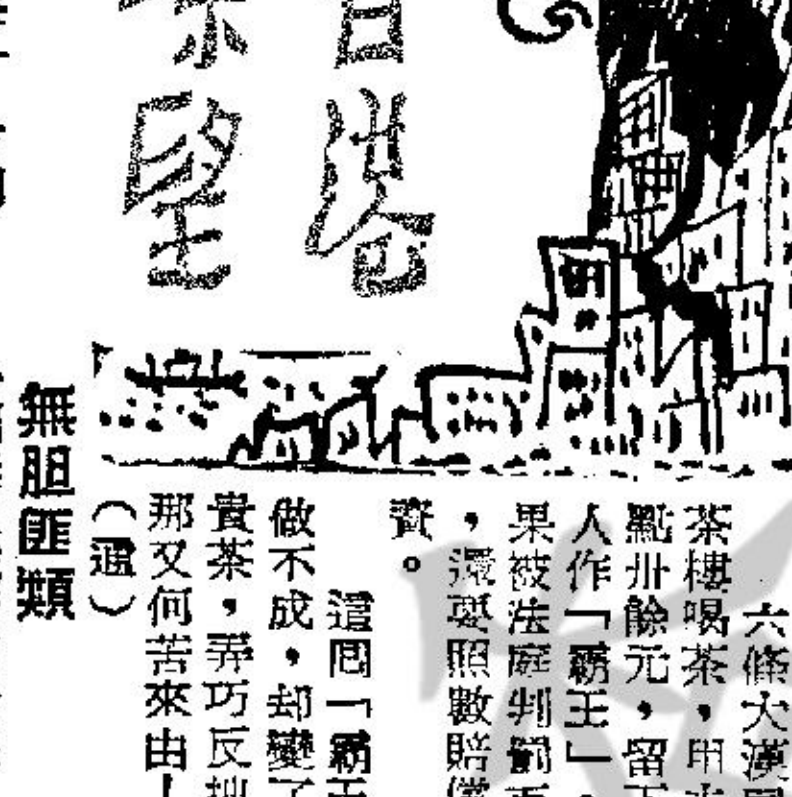 港
望
六條大漢
茶樓喝茶，叫
點卅餘元，留下
人作「霸王」。
果被法庭判罰
，還要照數賠償
資。
這囘「霸王
做不成，却變了
貴茶，弄巧反拙
那又何苦來由！
（通）
無胆匪類